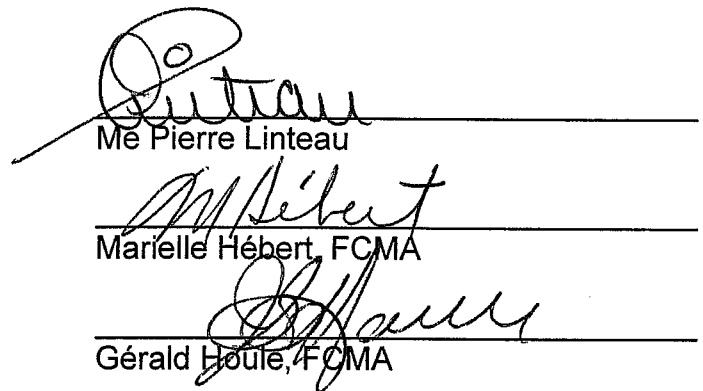 Linteau
Me Pierre Linteau
M Hébert
Marielle Hébert, FCMA
Gérald Houle, FCMA